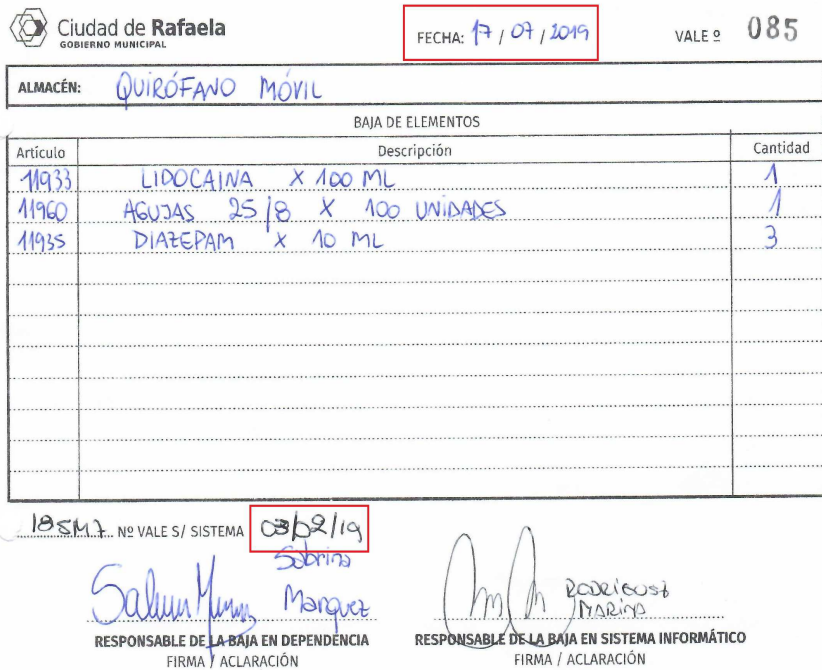 Ciudad de Rafaela
GOBIERNO MUNICIPAL
FECHA: 17 / 07 / 2019
VALE º 085
ALMACÉN: QUIRÓFANO MÓVIL
BAJA DE ELEMENTOS
Artículo Descripción Cantidad
11933 LIDOCAINA X 100 ML 1
11960 AGUJAS 25/8 X 100 UNIDADES 1
11935 DIAZEPAM X 10 ML 3
Nº VALE S/ SISTEMA 03/02/19
Sabrina
Marquez
RODRIGUEZ
MARINA
RESPONSABLE DE LA BAJA EN DEPENDENCIA
FIRMA / ACLARACIÓN
RESPONSABLE DE LA BAJA EN SISTEMA INFORMÁTICO
FIRMA / ACLARACIÓN